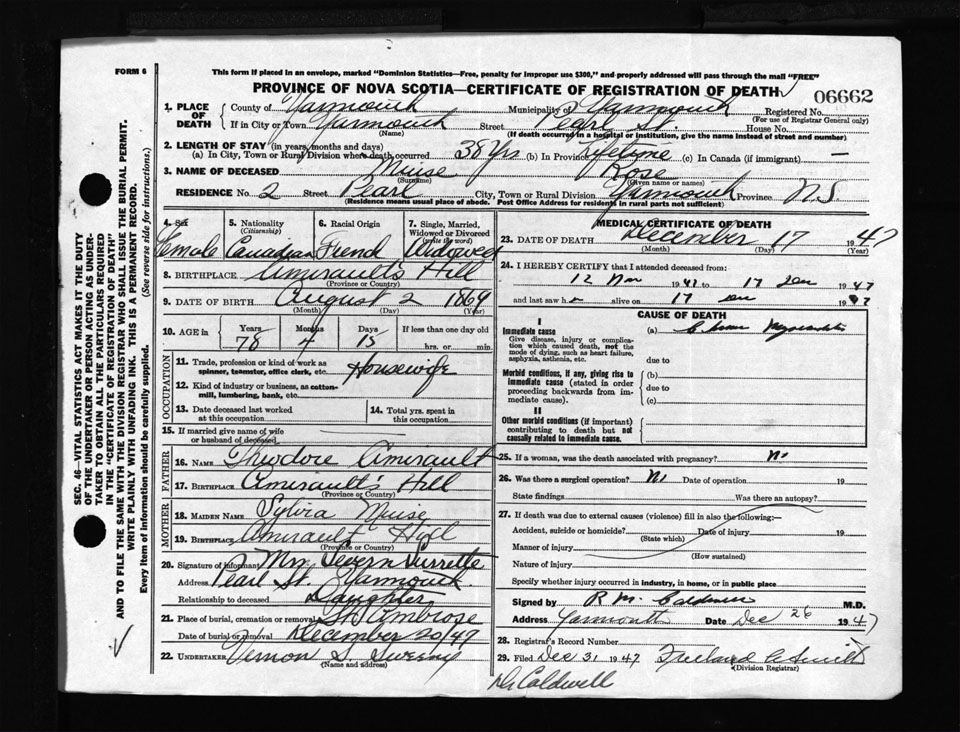 FORM 6
This form if placed in an envelope, marked "Dominion Statistics—Free, penalty for improper use $300," and properly addressed will pass through the mail "FREE"
PROVINCE OF NOVA SCOTIA—CERTIFICATE OF REGISTRATION OF DEATH
06662
1. PLACE OF DEATH
County of Yarmouth Municipality of Yarmouth Registered No.
(For use of Registrar General only)
If in City or Town Yarmouth Street Pearl St. House No.
(Name) (If death occurred in a hospital or institution, give the name instead of street and number)
2. LENGTH OF STAY (in years, months and days)
(a) In City, Town or Rural Division where death occurred 38 Yrs (b) In Province Lifetime (c) In Canada (if immigrant) —
3. NAME OF DECEASED Muise Rose
(Surname) (Given name or names)
RESIDENCE No. 2 Street Pearl City, Town or Rural Division Yarmouth Province N.S
(Residence means usual place of abode. Post Office Address for residents in rural parts not sufficient)
4. Sex Female
5. Nationality (Citizenship) Canadian
6. Racial Origin French
7. Single, Married, Widowed or Divorced (write the word) Widowed
8. BIRTHPLACE Amirault's Hill
(Province or Country)
9. DATE OF BIRTH August 2 1869
(Month) (Day) (Year)
10. AGE in Years 78 Months 4 Days 15 If less than one day hrs. or min.
OCCUPATION
11. Trade, profession or kind of work as spinner, teamster, office clerk, etc. Housewife
12. Kind of industry or business, as cotton-mill, lumbering, bank, etc.
13. Date deceased last worked at this occupation
14. Total yrs. spent in this occupation
15. If married give name of wife or husband of deceased
FATHER
16. NAME Theodore Amirault
17. BIRTHPLACE Amirault's Hill
(Province or Country)
MOTHER
18. MAIDEN NAME Sylvia Muise
19. BIRTHPLACE Amirault Hill
(Province or Country)
20. Signature of informant Mrs Severn Surrette
Address Pearl St. Yarmouth
Relationship to deceased Daughter
21. Place of burial, cremation or removal St Ambrose
Date of burial or removal December 20/47
22. UNDERTAKER Vernon S. Sweeny
(Name and address)
MEDICAL CERTIFICATE OF DEATH
23. DATE OF DEATH December 17 1947
(Month) (Day) (Year)
24. I HEREBY CERTIFY that I attended deceased from:
12 1947 to 17 1947
and last saw h alive on 17 1947
CAUSE OF DEATH
I
Immediate cause
Give disease, injury or complication which caused death, not the mode of dying, such as heart failure, asphyxia, asthenia, etc.
(a)
due to
Morbid conditions, if any, giving rise to immediate cause (stated in order proceeding backwards from immediate cause).
(b)
due to
(c)
II
Other morbid conditions (if important) contributing to death but not causally related to immediate cause.
25. If a woman, was the death associated with pregnancy? No
26. Was there a surgical operation? No Date of operation 19
State findings Was there an autopsy?
27. If death was due to external causes (violence) fill in also the following:—
Accident, suicide or homicide? Date of injury 19
(State which)
Manner of injury
(How sustained)
Nature of injury
Specify whether injury occurred in industry, in home, or in public place
Signed by R M. Caldwell M.D.
Address Yarmouth Date Dec 26 1947
28. Registrar's Record Number
29. Filed Dec 31 1947 Freeland A Smith
(Division Registrar)
Dr Caldwell
SEC. 46—VITAL STATISTICS ACT MAKES IT THE DUTY
OF THE UNDERTAKER OR PERSON ACTING AS UNDER-
TAKER TO OBTAIN ALL THE PARTICULARS REQUIRED
IN THE "CERTIFICATE OF REGISTRATION OF DEATH"
AND TO FILE THE SAME WITH THE DIVISION REGISTRAR WHO SHALL ISSUE THE BURIAL PERMIT.
WRITE PLAINLY WITH UNFADING INK. THIS IS A PERMANENT RECORD.
Every item of information should be carefully supplied. (See reverse side for instructions.)